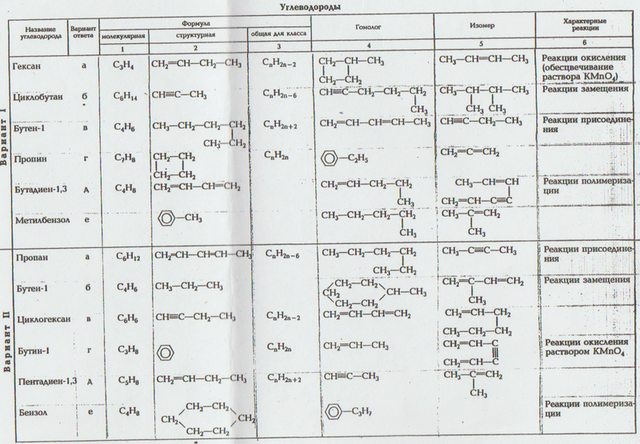 Углеводороды
Название углеводорода | Вариант ответа | Формула | Гомолог | Изомер | Характерные реакции
молекулярная | структурная | общая для класса
1 | 2 | 3 | 4 | 5 | 6
Вариант I
Гексан | а | C3H4 | CH2=CH–CH2–CH3 | CnH2n−2 | CH2–CH–CH3 CH2–CH2 | CH3–CH=CH–CH3 | Реакции окисления (обесцвечивание раствора KMnO4)
Циклобутан | б | C6H14 | CH≡C–CH3 | CnH2n−6 | CH≡C–CH2–CH2–CH2 CH3 | CH3–CH–CH–CH3 CH3 CH3 | Реакции замещения
Бутен-1 | в | C4H6 | CH3–CH2–CH2–CH2 CH2–CH2 | CnH2n+2 | CH2=CH–CH=CH–CH3 | CH≡C–CH2–CH3 | Реакции присоединения
Пропин | г | C7H8 | CH2–CH2 CH2–CH2 | CnH2n | –C2H5 | CH2=C=CH2
Бутадиен-1,3 | д | C4H8 | CH2=CH–CH=CH2 | CH2=CH–CH2–CH2 CH3 | CH3–CH=CH CH2=CH–C≡C | Реакции полимеризации
Метилбензол | е | –CH3 | CH3–CH2–CH2–CH2 CH3 | CH3–C=CH2 CH3
Вариант II
Пропан | а | C6H12 | CH2=CH–CH=CH–CH3 | CnH2n−6 | CH3–CH2–CH2–CH2 CH3–CH2 | CH3–C≡C–CH3 | Реакции присоединения
Бутен-1 | б | C4H6 | CH3–CH2–CH3 | CH2–CH2 CH2 CH–CH3 CH2–CH2 | CH2=C–CH=CH2 CH3 | Реакции замещения
Циклогексан | в | C6H6 | CH≡C–CH2–CH3 | CnH2n−2 | CH2=CH–CH=CH2 | CH2=CH–CH2 CH3–CH2–CH2
Бутин-1 | г | C3H8 | CnH2n | CH2=CH–CH3 | CH2=CH–C CH2=CH–C | Реакции окисления раствором KMnO4
Пентадиен-1,3 | д | C5H8 | CH2=CH–CH2–CH3 | CnH2n+2 | CH≡C–CH3 | CH3–C=CH2 CH3
Бензол | е | C4H8 | CH2–CH2 CH2 CH2 CH2–CH2 | –C3H7 | Реакции полимеризации